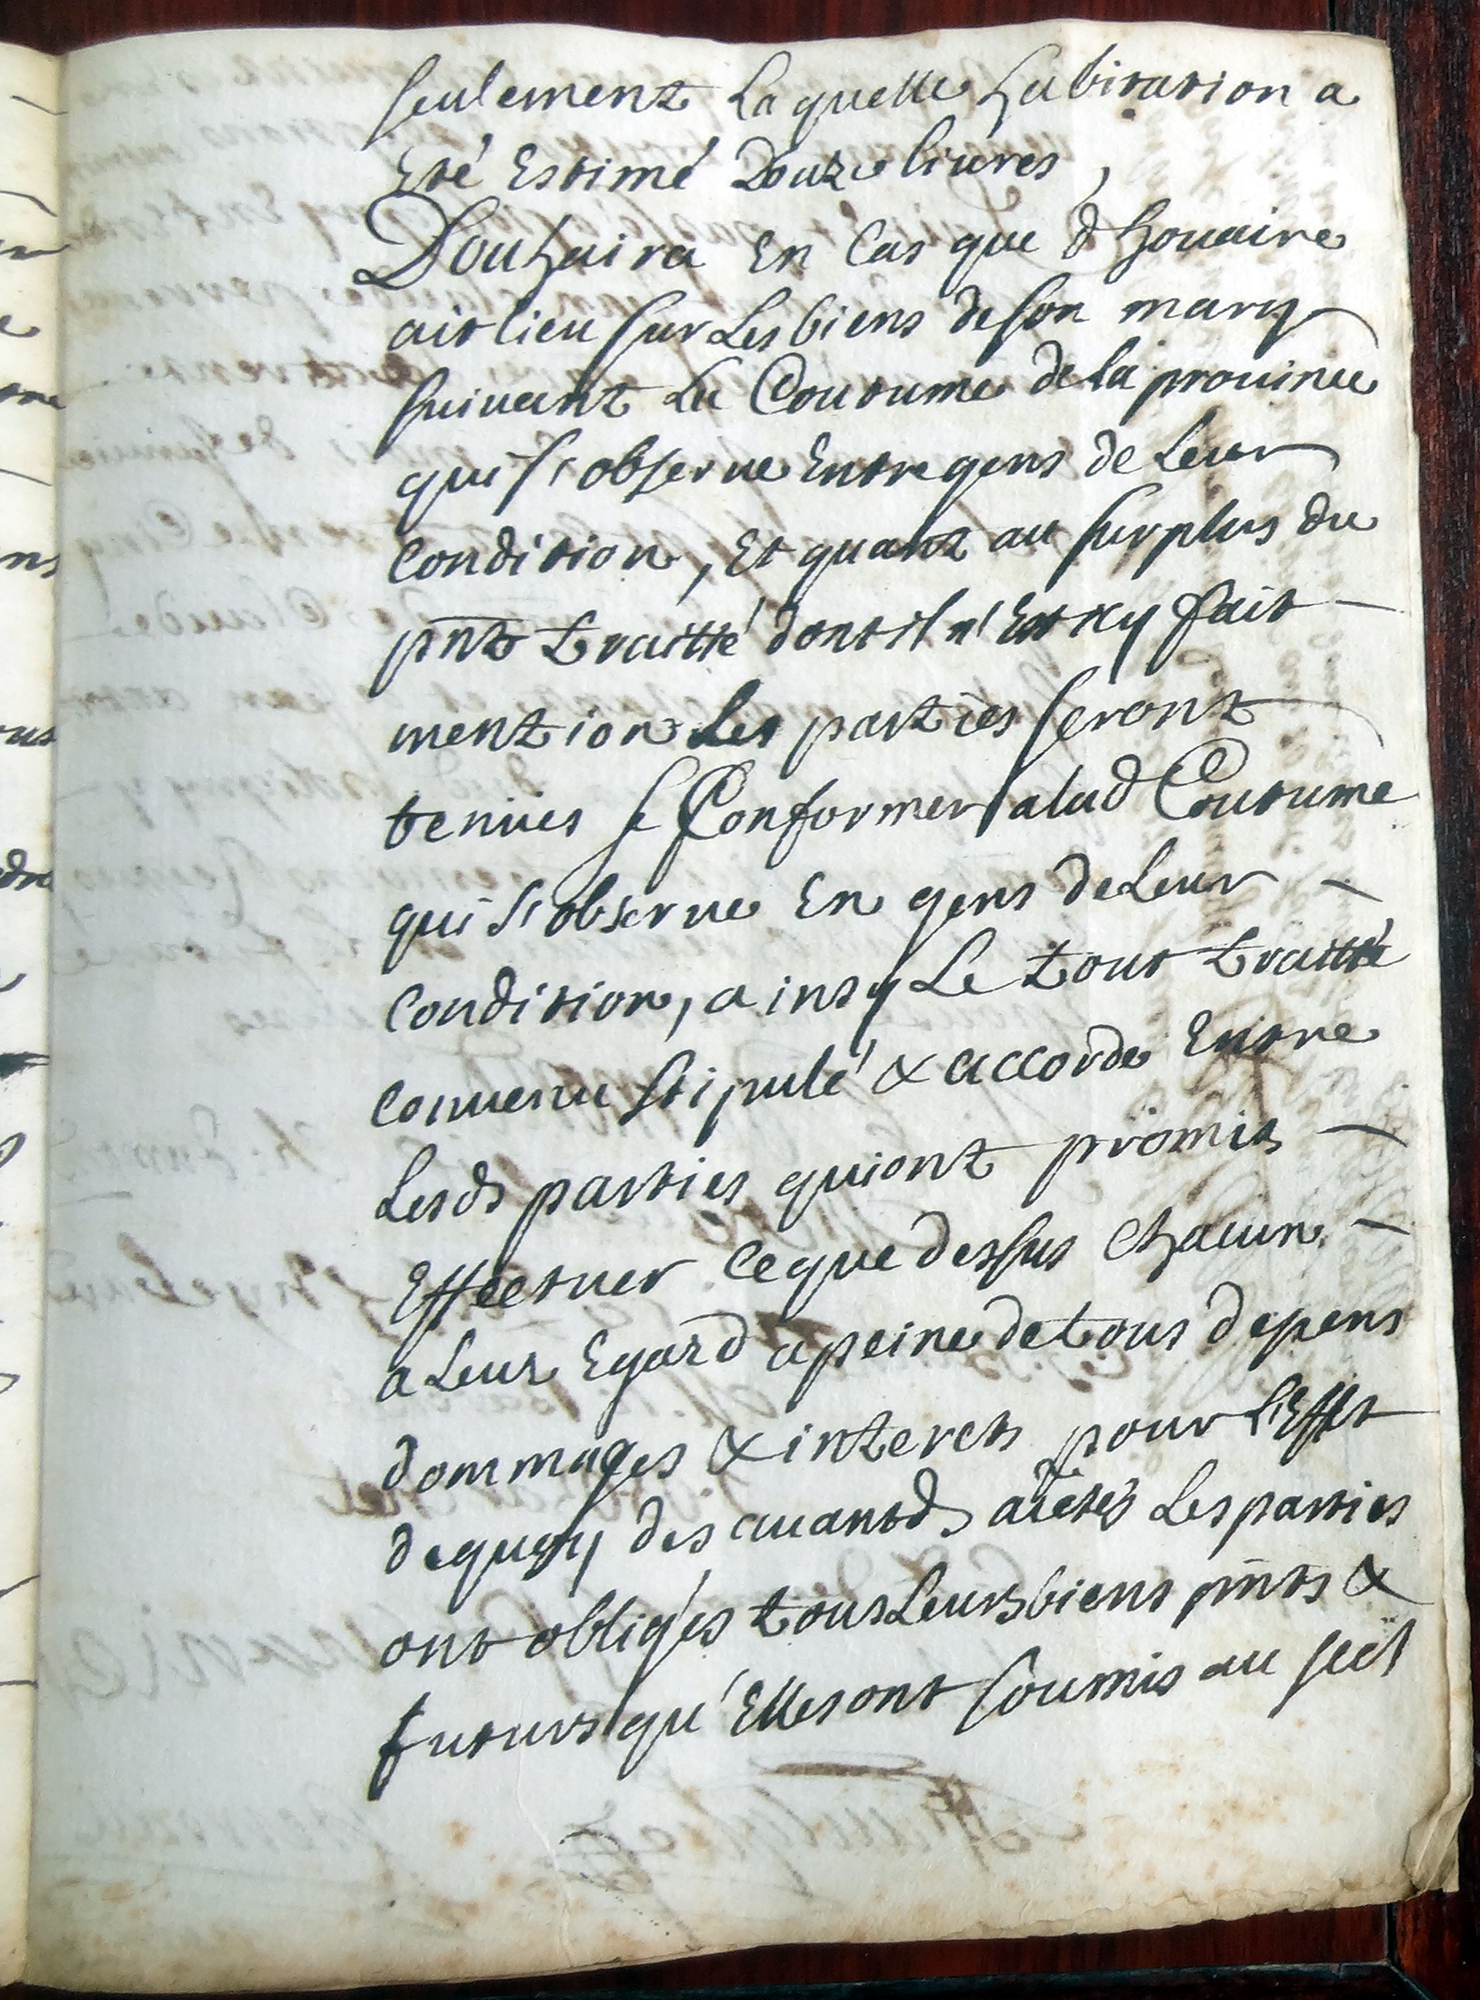 seulement Laquelle habitation a
Eté Estimé Douze livres,
Douhaira En Cas que dhouaire
ait lieu sur Les biens de son mary
suivant La Coutume de la province
qui s'observe Entre gens de Leur
condition, Et quant au surplus du
pnt traitté dont il n'Est icy fait
mention Les parties seront
tenües se Conformer a lad Coutume
qui s'observe En gens de Leur
condition, ainsy Le tout traitté
convenu stipulé & accordé Entre
Lesds parties qui ont promis
Effectuer ce que dessus chacun
a Leur Egard a peine de tous depens
dommages & interets pour L'Effet
de quoy des avantds actes Les parties
ont obligés tous Leurs biens pnts &
futurs qu'Elles ont soumis au scel